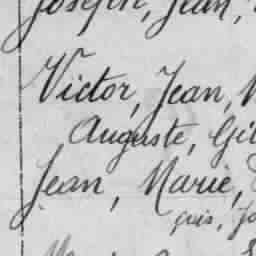 Joseph, Jean,
Victor, Jean,
Auguste,
Jean, Marie,